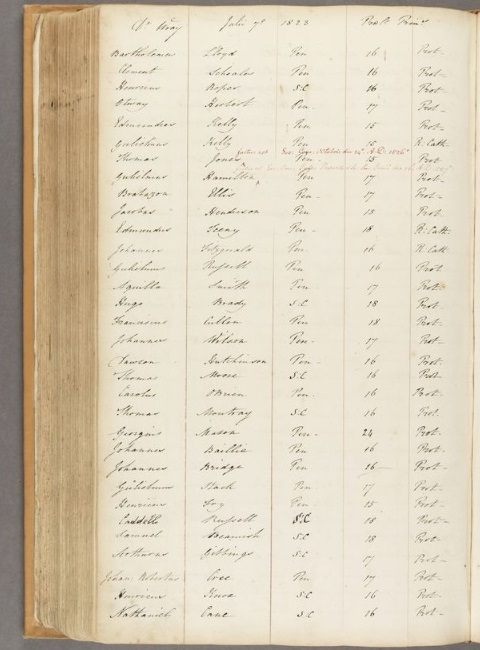 Dr Wray July 7th 1823 Prot Prim
Bartholomew Lloyd Pen 16 Prot.
Clement Schoales Pen 16 Prot
Henricus Roper S.C 16 Prot
Otway Herbert Pen. 17 Prot
Edmundus Kelly Pen 15 Prot
Gulielmus Kelly Pen 15 R. Cath.
Thomas Jones Pen. 15 Prot
Gulielmus Hamilton Pen 17 Prot
Brabazon Ellis Pen 17 Prot
Jacobus Henderson Pen 15 Prot
Edmundus Pen 18 R. Cath
Johannes Fitzgerald Pen 16 R. Cath
Gulielmus Russell Pen 16 Prot
Aquilla Smith Pen 17 Prot
Hugo Brady S.C 18 Prot
Franciscus Cullen Pen 18 Prot
Johannes Wilson Pen 17 Prot
Dawson Hutchinson Pen 16 Prot
Thomas Moore S.C 16 Prot
Carolus OBrien Pen. 16 Prot
Thomas S.C 16 Prot.
Georgius Mason Pen. 24 Prot
Johannes Baillie Pen 16 Prot
Johannes Bridge Pen 16 Prot
Gulielmus Pen 17 Prot
Henricus Pen 15 Prot
Russell S.C 18 Prot
Samuel Beamish S.C 18 Prot
Arthurus Gibbings S.C 17 Prot
Johan. Pen 17 Prot
Henricus S.C 16 Prot
Nathaniel Cane S.C 16 Prot